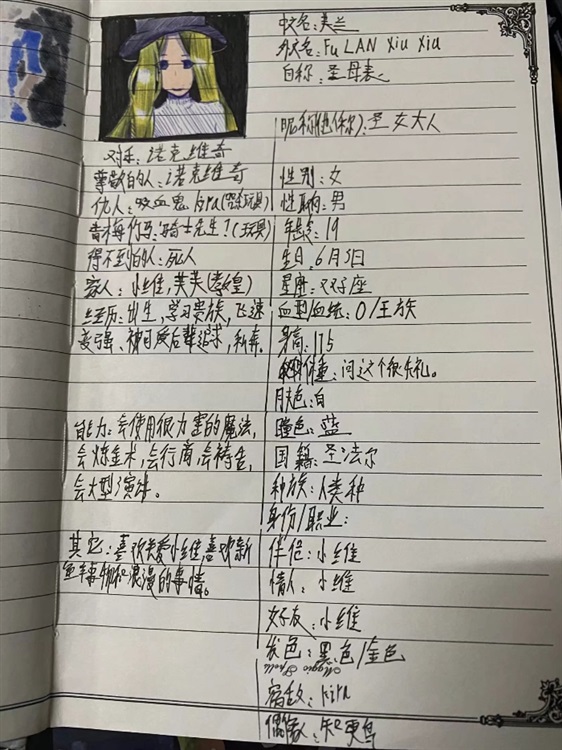 中文名:芙兰
外文名:Fu LAN Xiu Xiu
自称:圣母表
昵称(他称):圣女大人
性别:女
性取向:男
年龄:19
生日:6月5日
星座:双子座
血型/血统:O/王族
身高:175
体重:问这个很失礼。
肤色:白
瞳色:蓝
国籍:圣法尔
种族:人类种
身份/职业:
伴侣:小维
情人:小维
女好友:小维
发色:黑色/金色
Maggic Spell
宿敌:kira
偶像:知更鸟
对手:诺克维奇
尊敬的人:诺克维奇
仇人:吸血鬼 kira
青梅竹马:骑士先生?(玩具)
得不到的人:死人
家人:小维,芙芙(教皇)
经历:出生,学习贵族,飞速
变强、被日后后辈追求,
能力:会使用很力害的魔法,
会炼金术,会行商,会祷告,
会大型演讲。
其它:喜欢关爱小维,喜欢新
鱼羊事物和浪漫的事情。